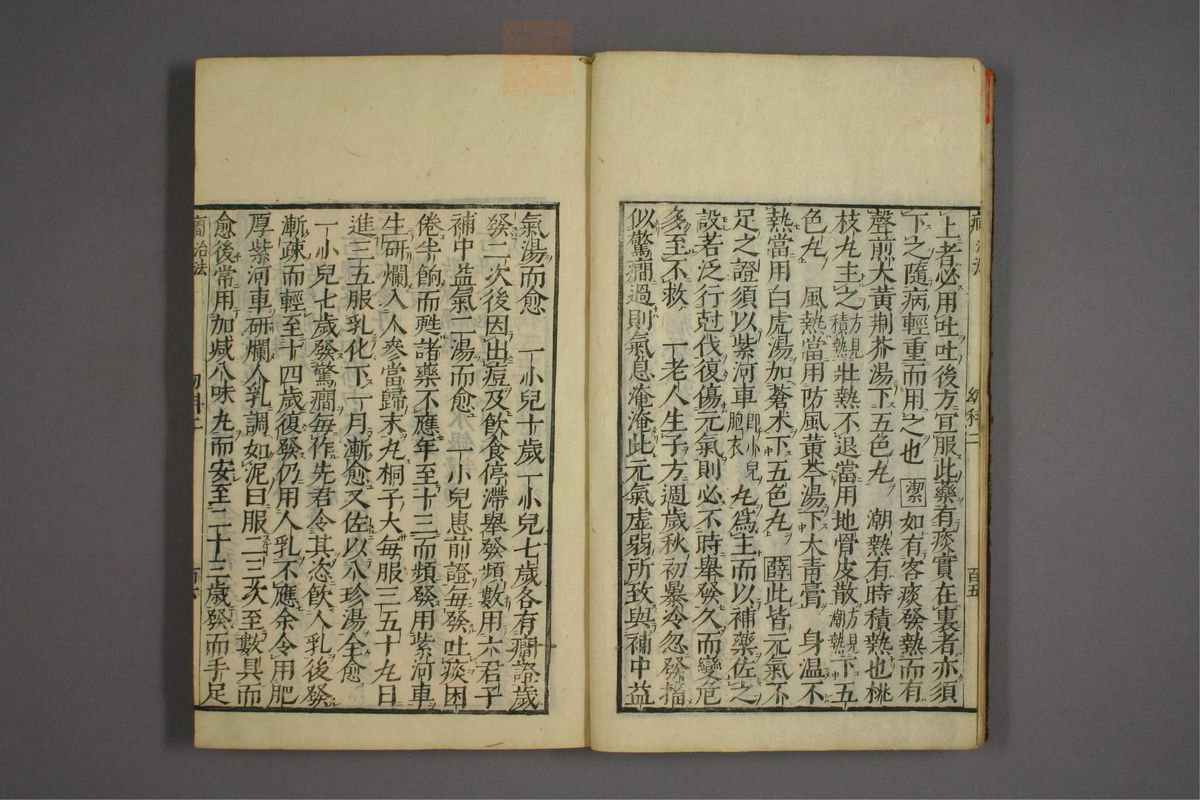 上者必用吐吐後方宜服此藥有痰實在裏者亦須
下之隨病輕重而用之也 潔 如有客痰發熱而有
聲煎大黃荆芥湯下五色丸 潮熱有時積熱也桃
枝丸主之方見積熱壯熱不退當用地骨皮散方見潮熱下五
色丸 風熱當用防風黃芩湯下大靑膏 身温不
熱當用白虎湯加蒼朮下五色丸 薛 此皆元氣不
足之證須以紫河車卽小兒胞衣丸爲主而以補藥佐之
設若泛行尅伐復傷元氣則必不時舉發久而變危
多至不救 一老人生子方週歲秋初暴冷忽發搐
似驚癇過則氣息淹淹此元氣虛弱所致與補中益
幼科二
百五
氣湯而愈 一小兒十歲一小兒七歲各有癇證歲
發二次後因出痘及飮食停滯舉發頻數用六君子
補中益氣二湯而愈 一小兒患前證每發吐痰困
倦半餉而甦諸藥不應年至十三而頻發用紫河車
生研爛入人參當歸末丸桐子大每服三五十丸日
進三五服乳化下一月漸愈又佐以八珍湯全愈
一小兒七歲發驚癇每作先君令其恣飮人乳後發
漸疎而輕至十四歲復發仍用人乳不應余令用肥
厚紫河車研爛人乳調如泥日服二三次至數具而
愈後常用加減八味丸而安至二十三歲發而手足
癇治法